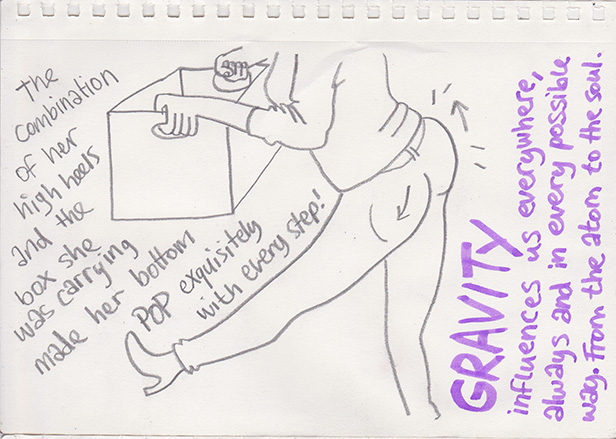 The
combination
of her
high heels
and the
box she
was carrying
made her bottom
POP exquisitely
with every step!
GRAVITY
influences us everywhere,
always and in every possible
way. From the atom to the soul.